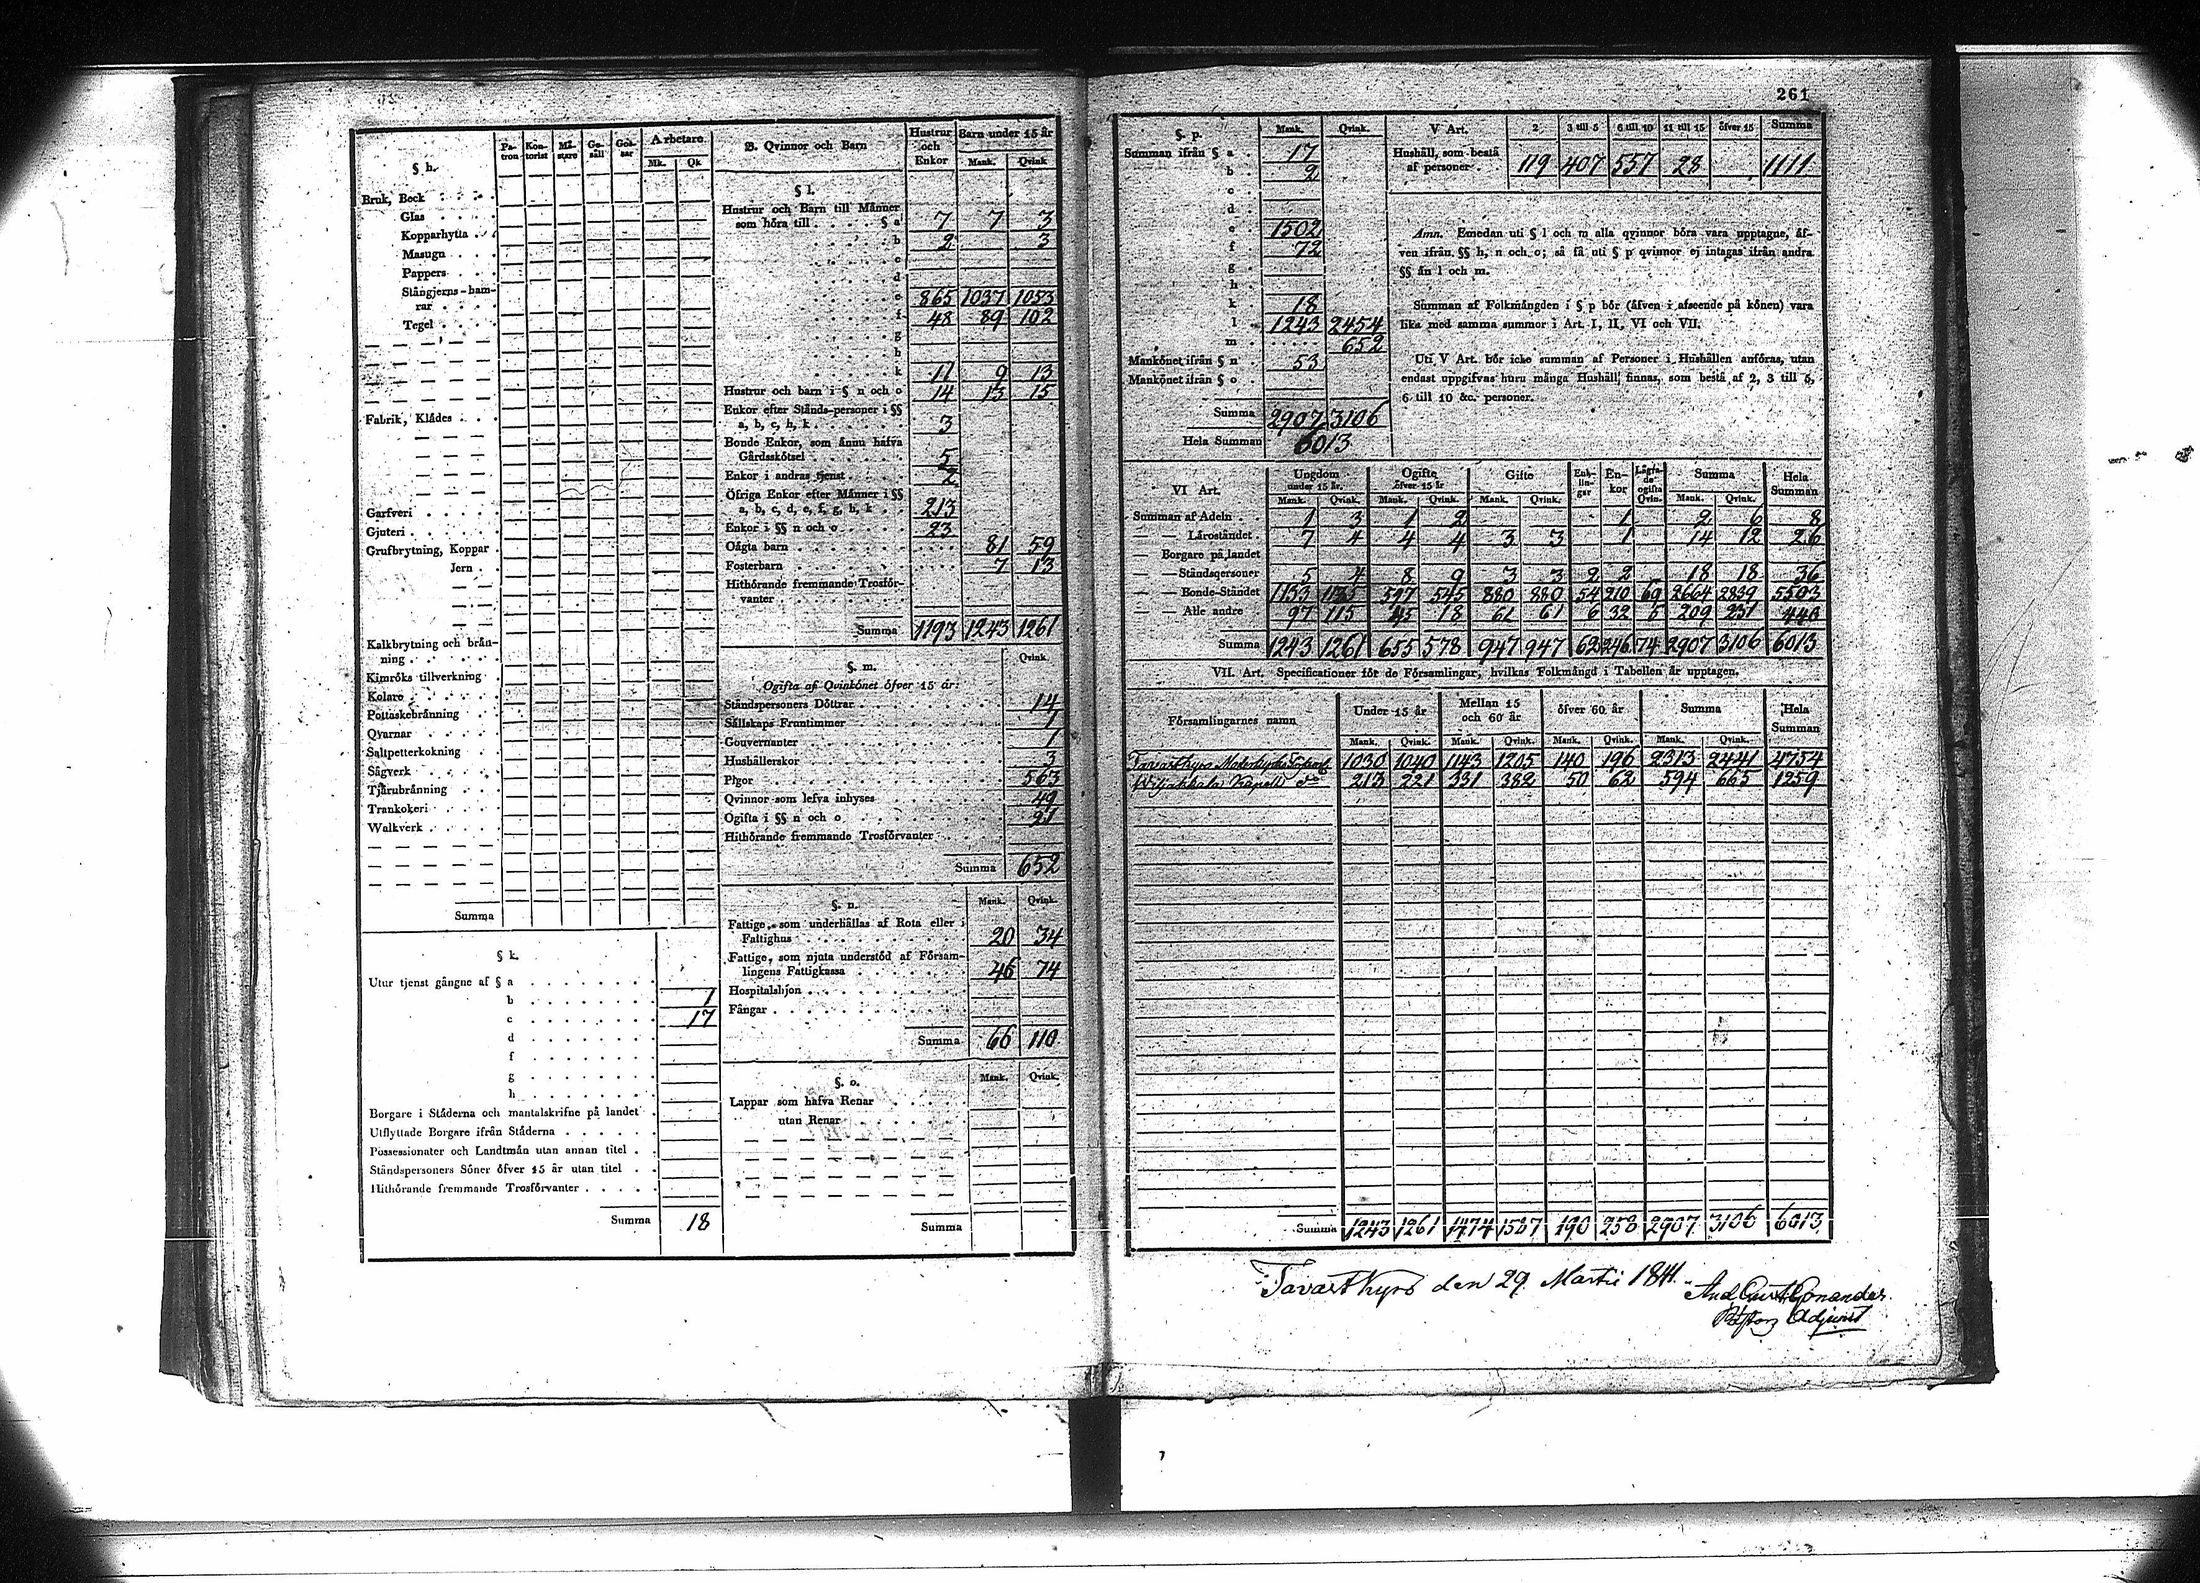 261
§ h.
Pa-tron Kon-torist Mä-stare Ge-säll Gos-sar Arbetare
Mk. Qk
Bruk, Beck
Glas
Kopparhytta
Masugn
Pappers
Stångjerns-ham-
rar
Tegel
Fabrik, Klädes
Garfveri
Gjuteri
Grufbrytning, Koppar
Jern
Kalkbrytning och brän-
ning
Kimröks tillverkning
Kolare
Pottaskebränning
Qvarnar
Saltpetterkokning
Sågverk
Tjärubränning
Trankokeri
Walkverk
Summa
§ k.
Utur tjenst gångne af § a
b 1
c 17
d
f
g
h
Borgare i Städerna och mantalskrifne på landet
Utflyttade Borgare ifrån Städerna
Possessionater och Landtmän utan annan titel
Ståndspersoners Söner öfver 15 år utan titel
Hithörande fremmande Trosförvanter
Summa 18
B. Qvinnor och Barn
Hustrur och Enkor Barn under 15 år
Mank. Qvink
§ l.
Hustrur och Barn till Männer
som höra till § a 7 7 3
b 2 3
c
d
e 865 1037 1053
f 48 89 102
g
h
k 11 9 13
Hustrur och barn i § n och o 14 13 15
Enkor efter Stånds-personer i §§
a, b, c, h, k 3
Bonde Enkor, som ännu hafva
Gårdsskötsel 5
Enkor i andras tjenst 2
Öfriga Enkor efter Männer i §§
a, b, c, d, e, f, g, h, k 213
Enkor i §§ n och o 23
Oägta barn 81 59
Fosterbarn 7 13
Hithörande fremmande Trosför-
vanter
Summa 1193 1243 1261
§. m. Qvink
Ogifta af Qvinkönet öfver 15 år:
Ståndspersoners Döttrar 14
Sällskaps Fruntimmer 1
Gouvernanter 1
Hushållerskor 3
Pigor 563
Qvinnor som lefva inhyses 49
Ogifta i §§ n och o 21
Hithörande fremmande Trosförvanter
Summa 652
§. n. Mank. Qvink.
Fattige, som underhållas af Rota eller i
Fattighus 20 34
Fattige, som njuta understöd af Försam-
lingens Fattigkassa 46 74
Hospitalshjon
Fångar
Summa 66 110
§. o. Mank. Qvink.
Lappar som hafva Renar
utan Renar
Summa
§. p. Mank. Qvink.
Summan ifrån § a 17
b 2
c
d
e 1502
f 72
g
h
k 18
l 1243 2454
m 652
Mankönet ifrån § n 53
Mankönet ifrån § o
Summa 2907 3106
Hela Summan 6013
V Art. 2 3 till 5 6 till 10 11 till 15 öfver 15 Summa
Hushåll, som bestå
af personer 119 407 557 28 1111
Anm. Emedan uti § l och m alla qvinnor böra vara upptagne, äf-
ven ifrån §§ h, n och o; så få uti § p qvinnor ej intagas ifrån andra
§§ än l och m.
Summan af Folkmängden i § p bör (äfven i afseende på könen) vara
lika med samma summor i Art. I, II, VI och VII.
Uti V Art. bör icke summan af Personer i Hushållen anföras, utan
endast uppgifvas huru många Hushåll finnas, som bestå af 2, 3 till 5,
6 till 10 &c. personer.
VI Art. Ungdom under 15 år. Ogifte öfver 15 år Gifte Enk-lin-gar En-kor Lägra-de ogifta Qvin. Summa Hela Summan
Mank. Qvink. Mank. Qvink. Mank. Qvink. Mank. Qvink.
Summan af Adeln 1 3 1 2 1 2 6 8
— — Läroståndet 7 4 4 4 3 3 1 14 12 26
— — Borgare på landet
— — Ståndspersoner 5 4 8 9 3 3 2 2 18 18 36
— — Bonde-Ståndet 1133 1135 597 545 880 880 54 210 69 2664 2839 5503
— — Alle andre 97 115 45 18 61 61 6 32 5 209 231 440
Summa 1243 1261 655 578 947 947 62 246 74 2907 3106 6013
VII. Art. Specificationer för de Församlingar, hvilkas Folkmängd i Tabellen är upptagen.
Församlingarnes namn Under 15 år Mellan 15 och 60 år öfver 60 år Summa Hela Summan
Mank. Qvink. Mank. Qvink. Mank. Qvink. Mank. Qvink.
Tavastkyro Moderkyrko 1030 1040 1143 1205 140 196 2313 2441 4754
Wiljakkala Capell 213 221 331 382 50 62 594 665 1259
Summa 1243 1261 1474 1587 190 258 2907 3106 6013
Tavastkyro den 29 Martii 1841.
Adjunct